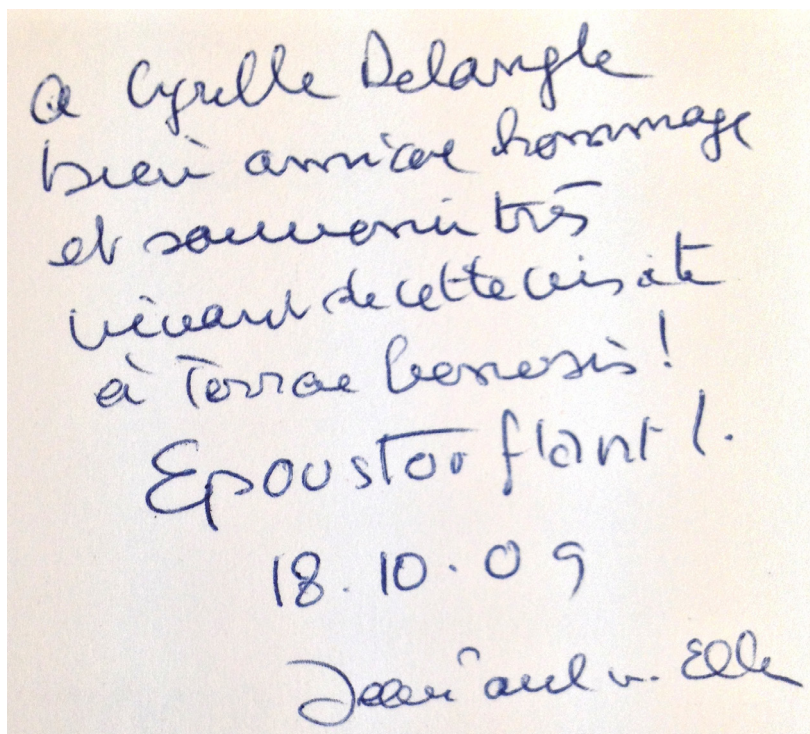 a Cyrille Delangle
bien amical hommage
et souvenir très
vivant de cette visite
à Terrae Genesis !
Epoustouflant !
18.10.09